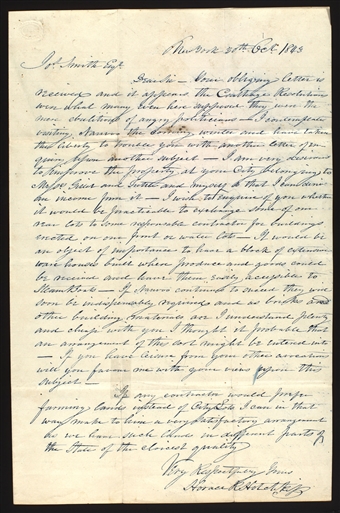 New York 20th Oct. 1843
Jos. Smith Esqr
Dear Sir – Your obliging letter is
received and it appears the Carthage Resolutions
were what many even here supposed they were the
mere ebulitions of angry politicians – I contemplate
visiting Nauvoo the coming winter and have taken
this liberty to trouble you with another letter of en-
quiry upon another subject – I am very desirous
to improve the property at your City belonging to
Mess Gillet and Tuttle and myself so that I can derive
an income from it – I wish to enquire of you whether
it would be practicable to exchange some of our
rear lots to some responsible contractor for buildings
erected on our front or water lots – It would be
an object of importance to have a block of extensive
ware houses built where produce and goods could
be received and leave them easily accessible to
Steam Boats – If Nauvoo continues to succeed they will
soon be indispensably required and as bricks and
other building materials are I understand plenty
and cheap with you I thought it probable that
an arrangement of this sort might be entered into
– If you have leisure from your other avocations
will you favour me with your views upon this
subject –
If any contractor would prefer
farming lands instead of City Lots I can in that
way make to him a very satisfactory arrangement
as we have such lands in different parts of
the State of the choicest quality
Very Respectfully Yours
Horace R Hotchkiss